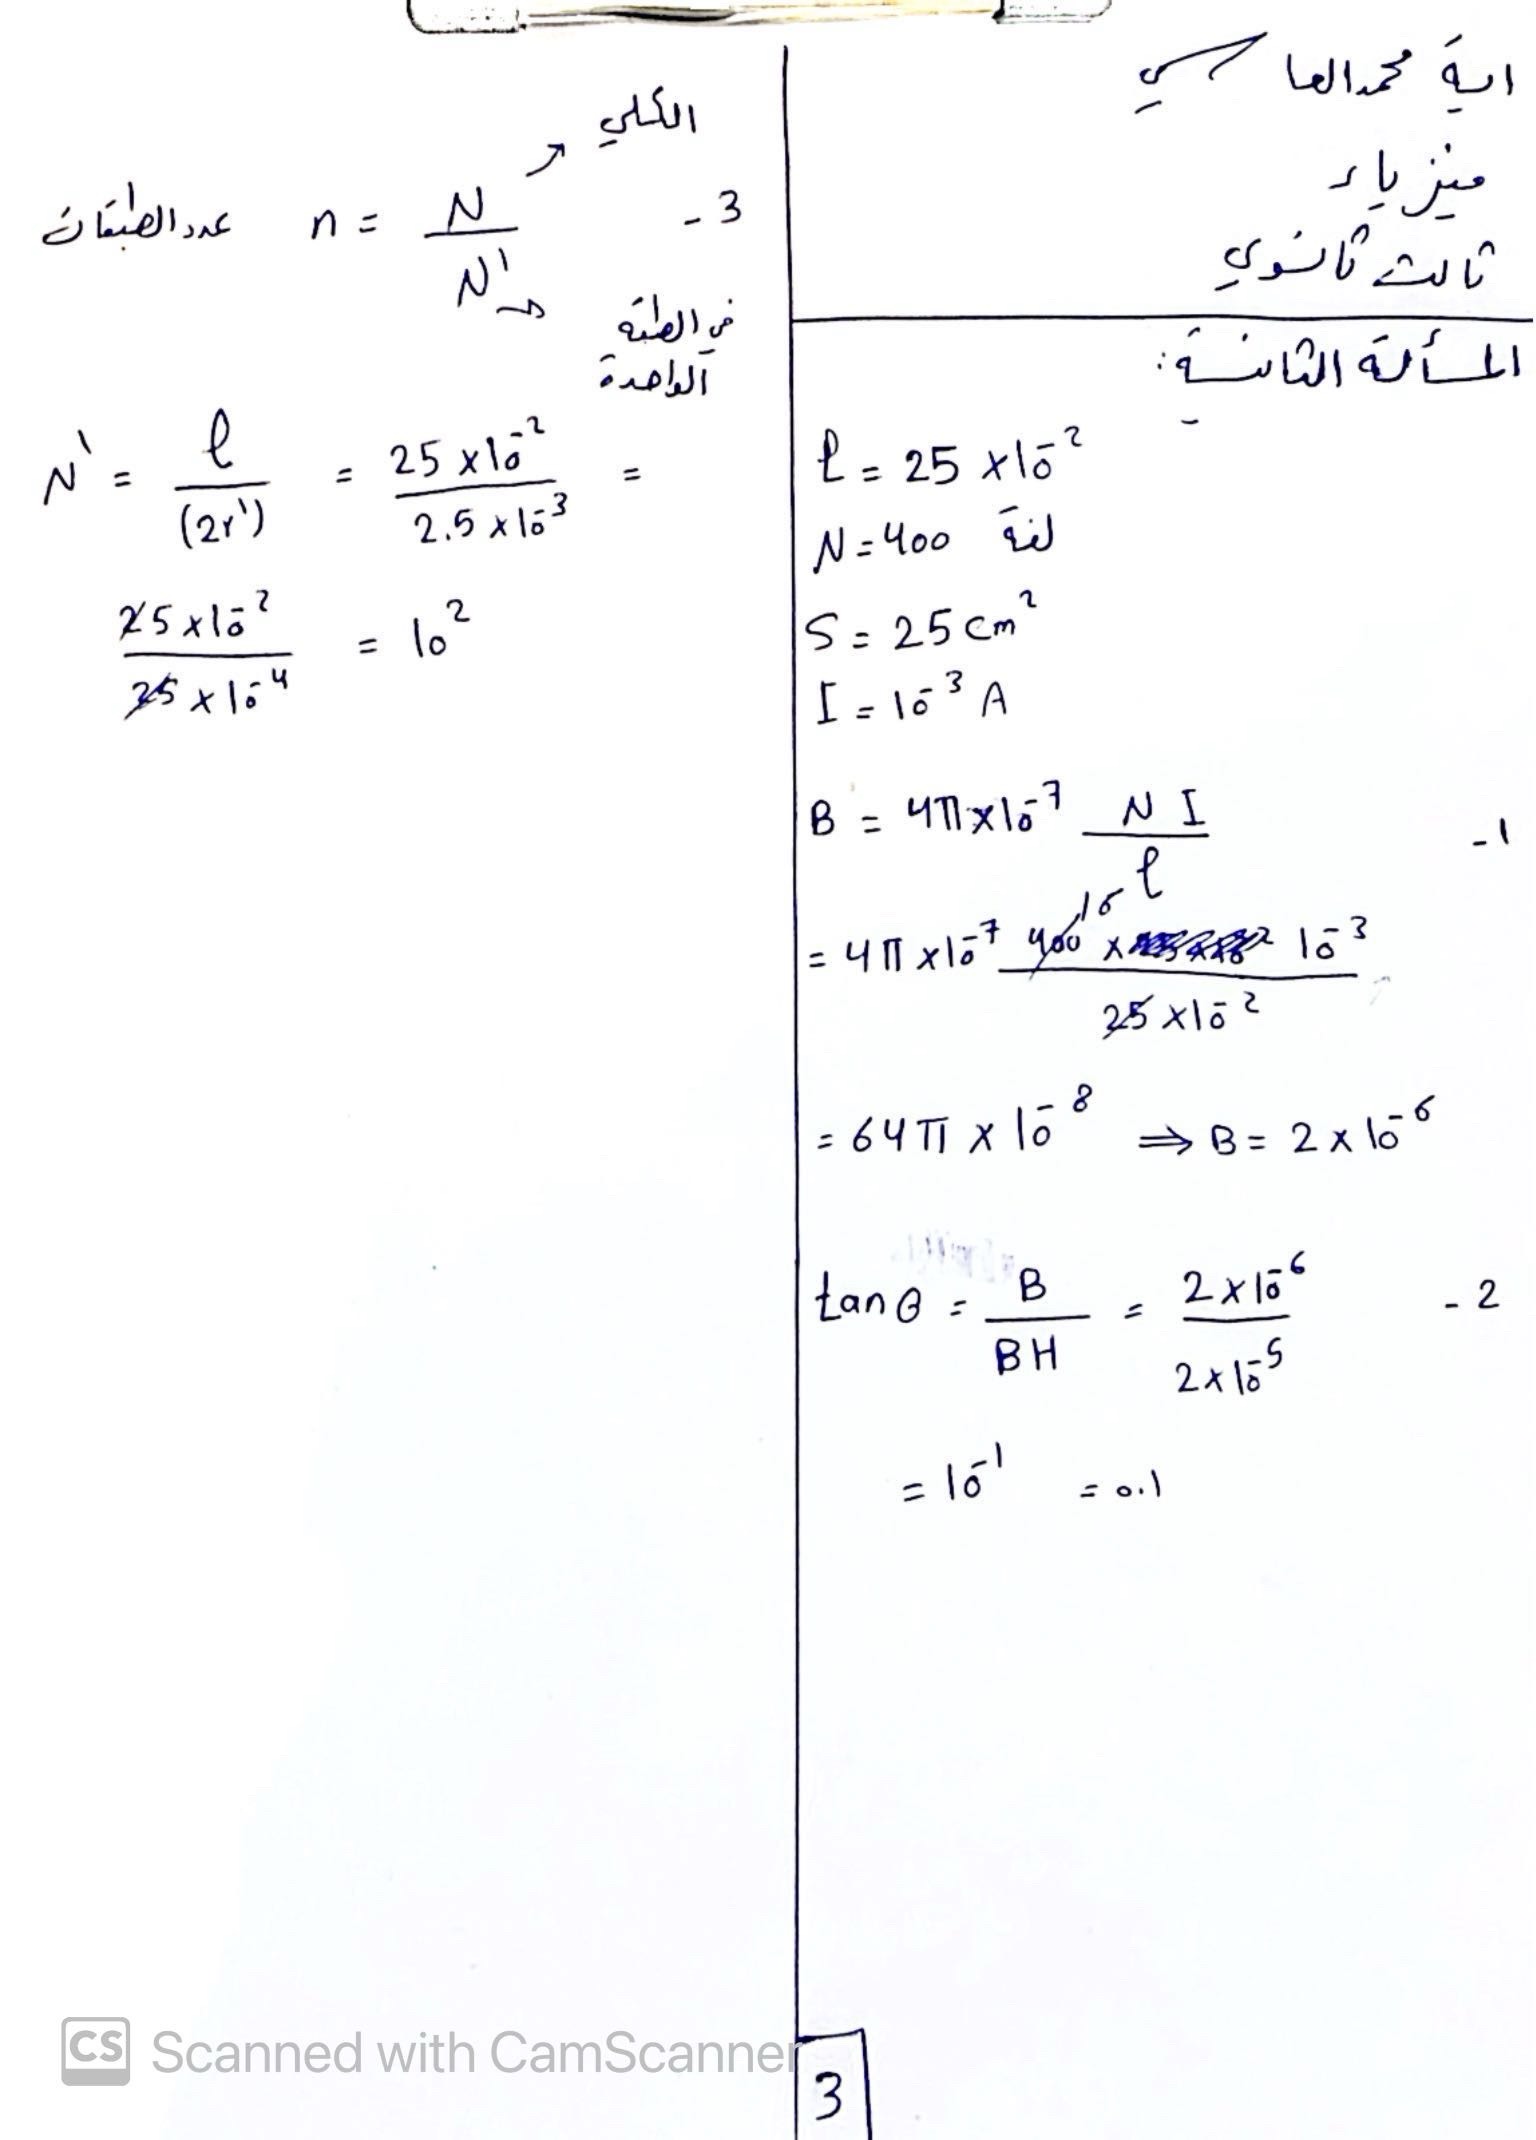 اية محمد العاسمي
فيزياء
ثالث ثانوي
المسألة الثانية:
ℓ = 25 × 10⁻²
N = 400 لفة
S = 25 cm²
I = 10⁻³ A
1- B = 4π×10⁻⁷ N I / ℓ
= 4π × 10⁻⁷ 400 16 × 10⁻³ / 25 × 10⁻²
= 64π × 10⁻⁸ ⇒ B = 2 × 10⁻⁶
2- tan θ = B / BH = 2 × 10⁻⁶ / 2 × 10⁻⁵
= 10⁻¹ = 0.1
الكلي
3- n = N / N' عدد الطبقات
في الطبقة
الواحدة
N' = ℓ / (2r') = 25 × 10⁻² / 2.5 × 10⁻³ =
25 × 10⁻² / 25 × 10⁻⁴ = 10²
CS Scanned with CamScanner
3